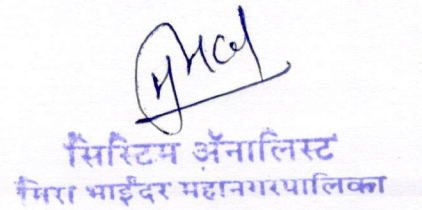 सिस्टिम अ‍ॅनालिस्ट
मिरा भाईंदर महानगरपालिका